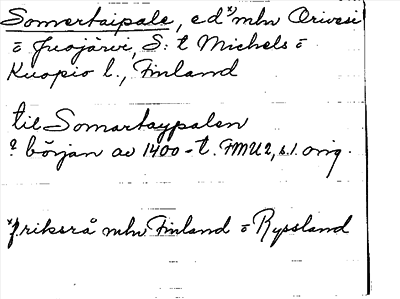 Somertaipale, ed*) mln Orivesi
o Juojärvi, S:t Michels o
Kuopio l., Finland
til Somartaypalen
? början av 1400-t. FMU2, s.1. orig.
*) riksrå mln Finland o Ryssland